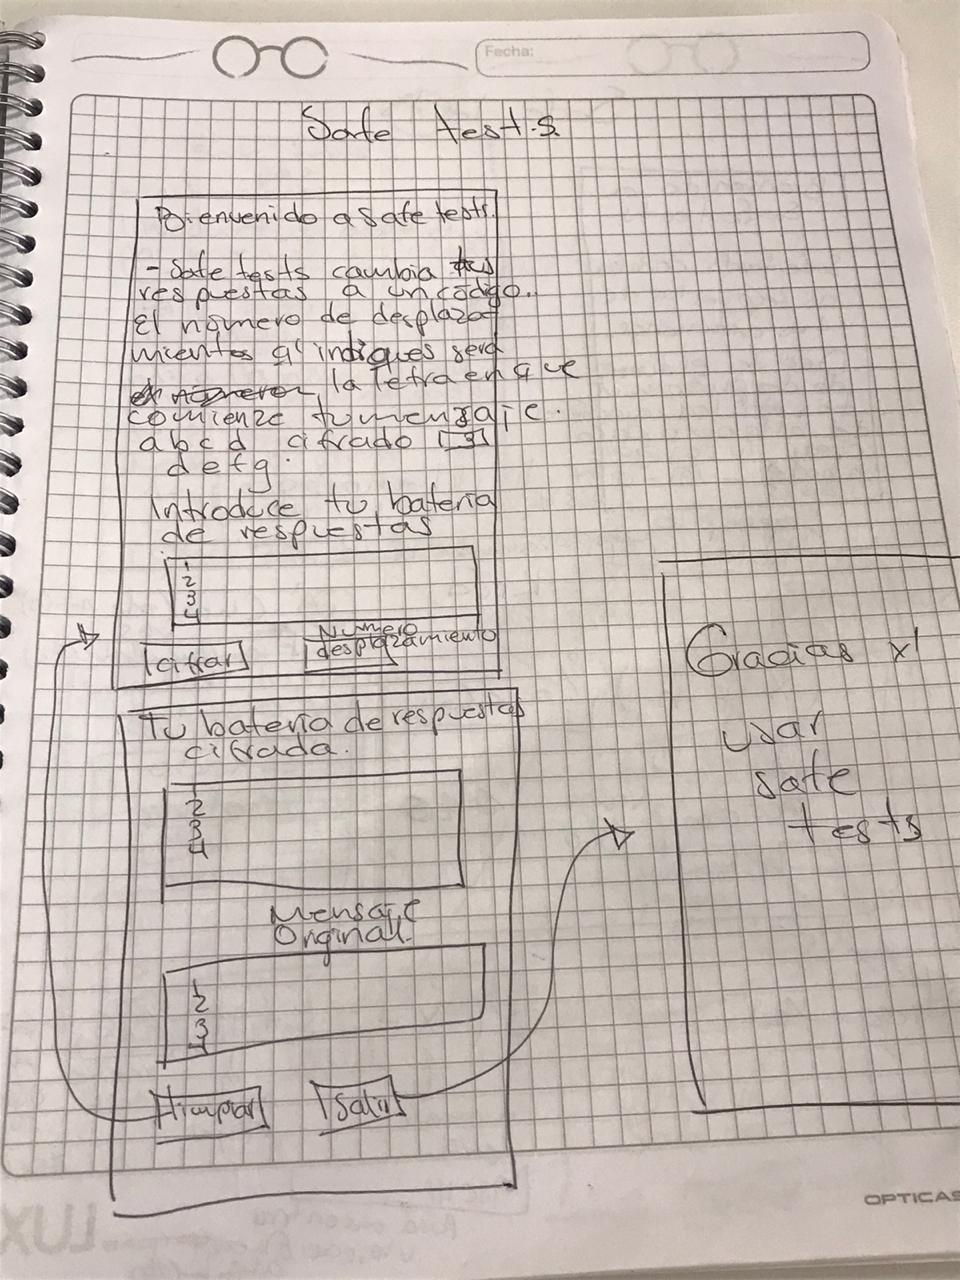 Fecha:
Safe tests
Bienvenido a safe tests.
- Safe tests cambia tus
respuestas a un código..
El número de desplaza
mientos q' indiques será
la letra en que
comienze tu mensaje.
abcd cifrado [3]
defg.
Introduce tu batería
de respuestas
1
2
3
4
Numero
desplazamiento
cifrar
Tu batería de respuestas
cifrada.
1
2
3
4
Mensaje
Original.
1
2
3
4
limpiar
Salir
Gracias x'
usar
safe
tests
OPTICAS
LUX